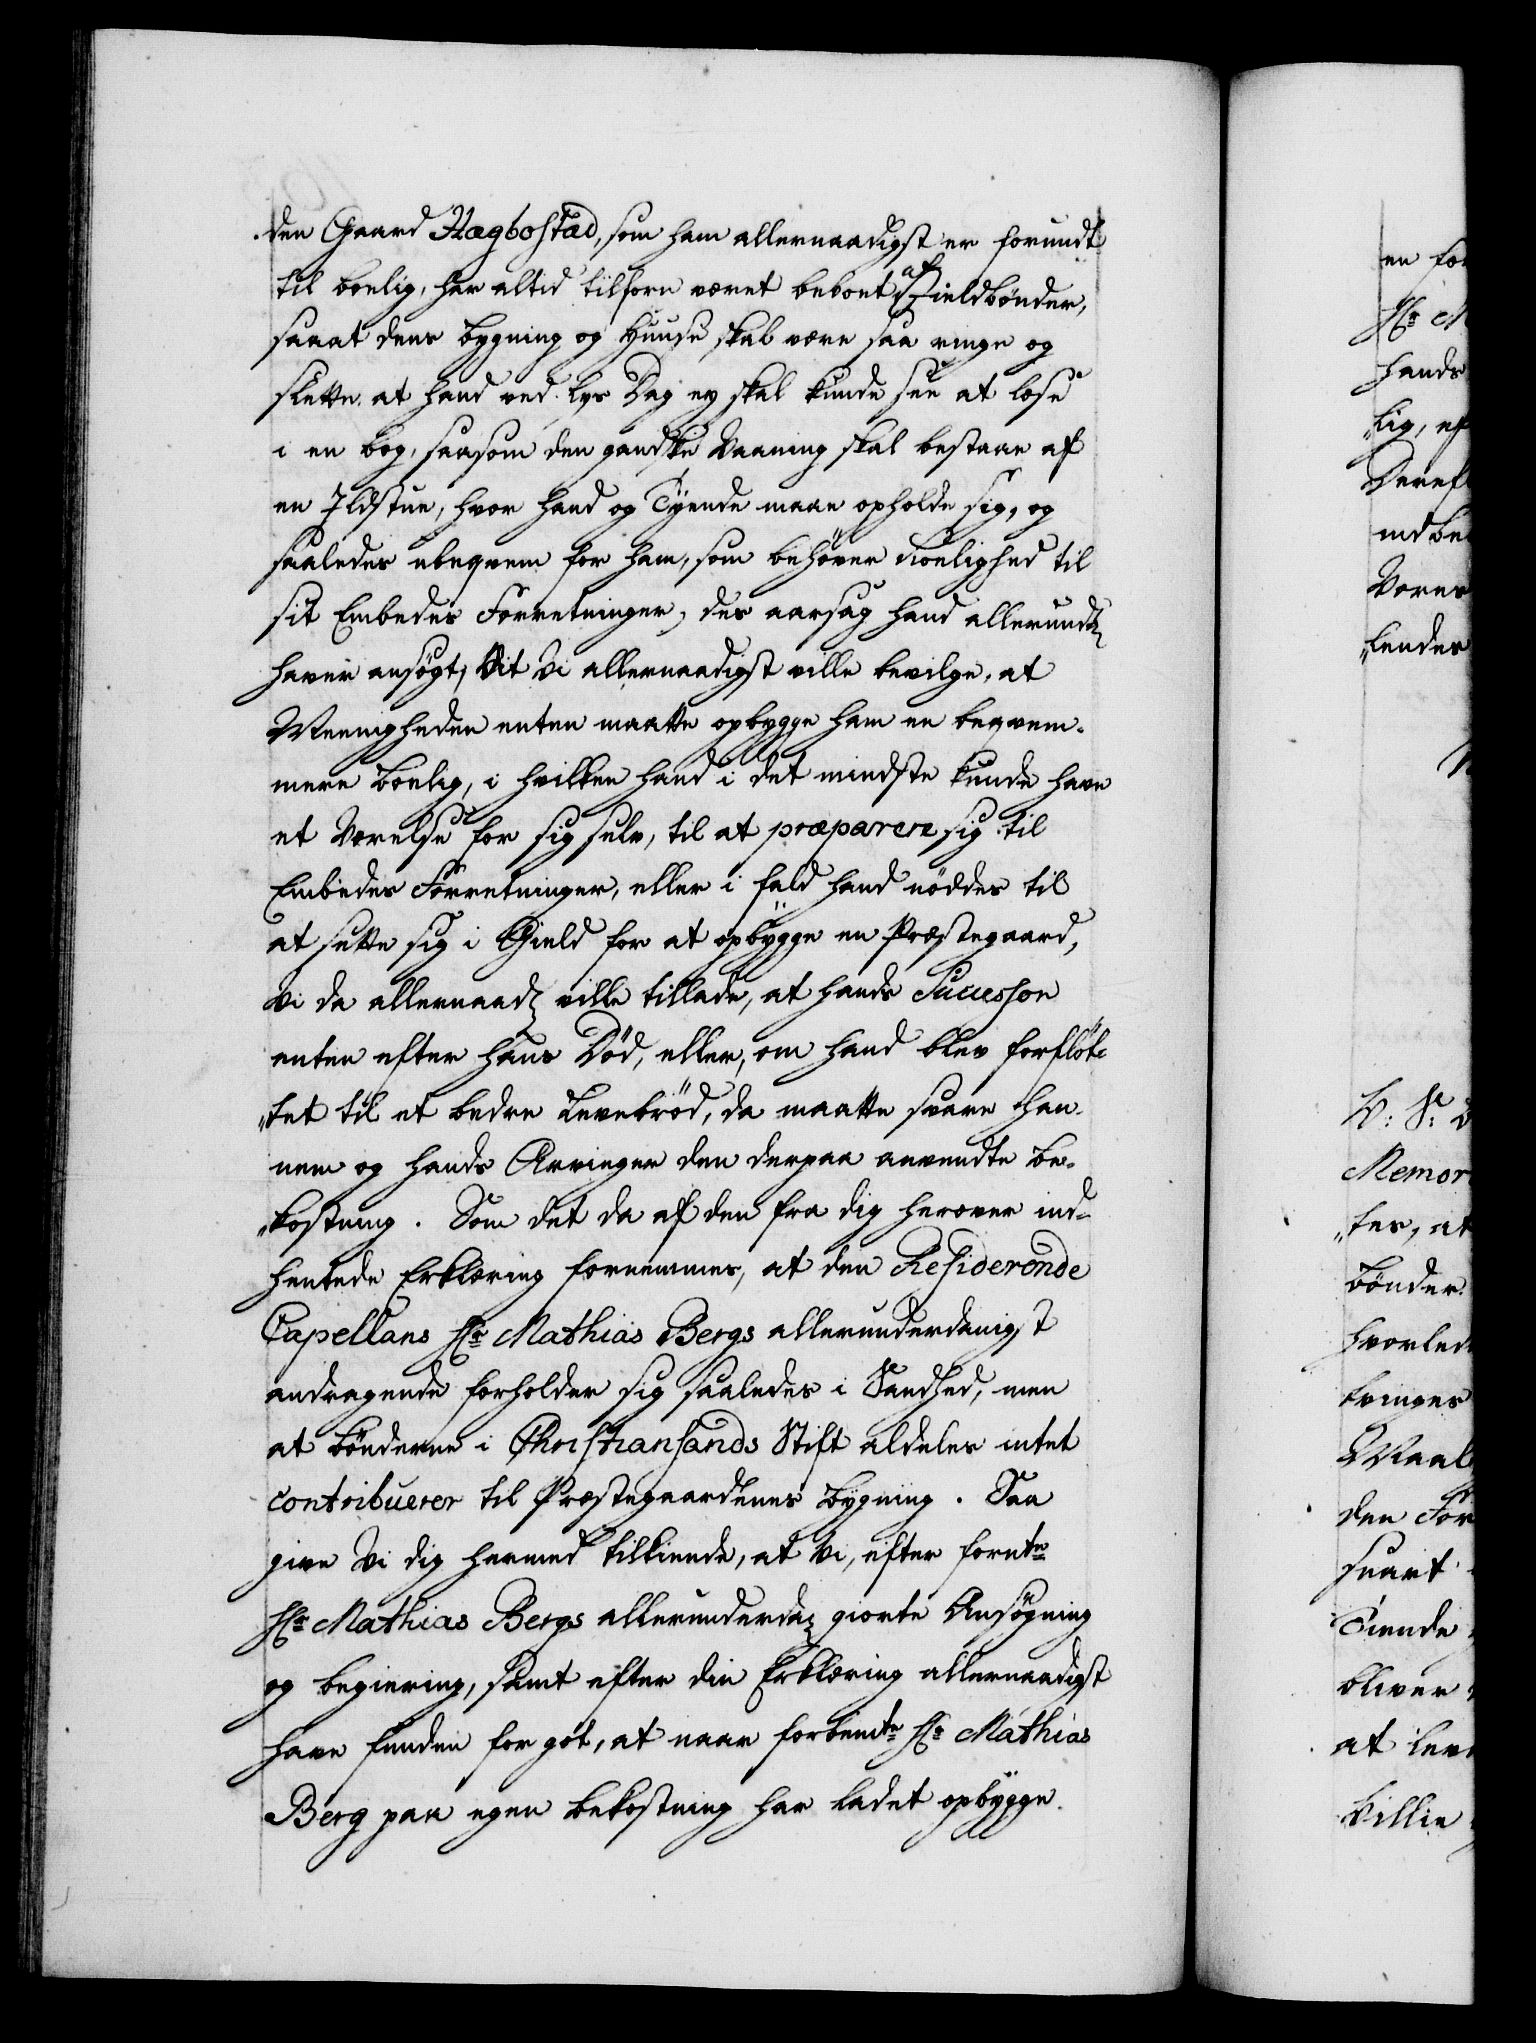 den Gaard Hægbostad, som ham allernaadigst er forundt
til boelig, har altid tilforn været beboet af Fieldbønder,
saa at dens bygning og Huuse skal være saa ringe og
slette, at hand ved lys Dag ey skal kunde see at læse
i en bog, saasom den gandske Vaaning skal bestaae af
en Ildstue, hvor hand og Tyende maae opholde sig, og
saaledes ubeqvem for ham, som behöver Roelighed til
sit Embedes Forretninger, des aarsag hand allerundd
haver ansögt, at Vi allernaadigst ville bevilge, at
Meenigheden enten maatte opbygge ham en beqvem-
mere boelig, i hvilken hand i det mindste kunde have
et Værelse for sig selv, til at præparere sig til
Embedes Forretninger, eller i fald hand nöddes til
at sette sig i Gield for at opbygge en Præstegaard,
Vi da allernaad ville tillade, at hands Successor
enten efter hans Död, eller, om hand blev forflöt-
„tet til et bedre Levebröd, da maatte svare han-
nem og hands Arvinger den derpaa anvendte Be-
„kostning. Som det da af den fra dig herover ind-
hentede Erklæring fornemmes, at den Residerende
Capellans Hr Mathias Bergs allerunderdanigst
andragende forholder sig saaledes i Sandhed, men
at bönderne i Christiansands Stift aldeles intet
contribuerer til Præstegaardenes bygning. Saa
give Vi dig hermed tilkiende, at Vi, efter fornte
Hr Mathias Bergs allerunderda giorte Ansögning
og begiering, samt efter din Erklæring allernaadigst
have funden for got, at naar forbemte Hr Mathias
Berg paa egen bekostning har ladet opbygge
en for
Hr M
hands
„lig, ef
Deref
ind be
Vores
„lendes
Memor
„tes, at
bönder
hvorled
bringes
Maal
den For
svart
Tiende
bliver
at lev
Villie